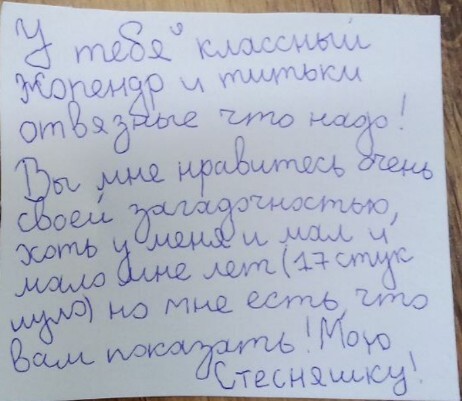 У тебя классный
жопендр и титьки
отвязные что надо!
Вы мне нравитесь очень
своей загадочностью,
хоть у меня и мал и
мало мне лет (17 стук
нуло) но мне есть, что
вам показать! Мою
Стесняшку!